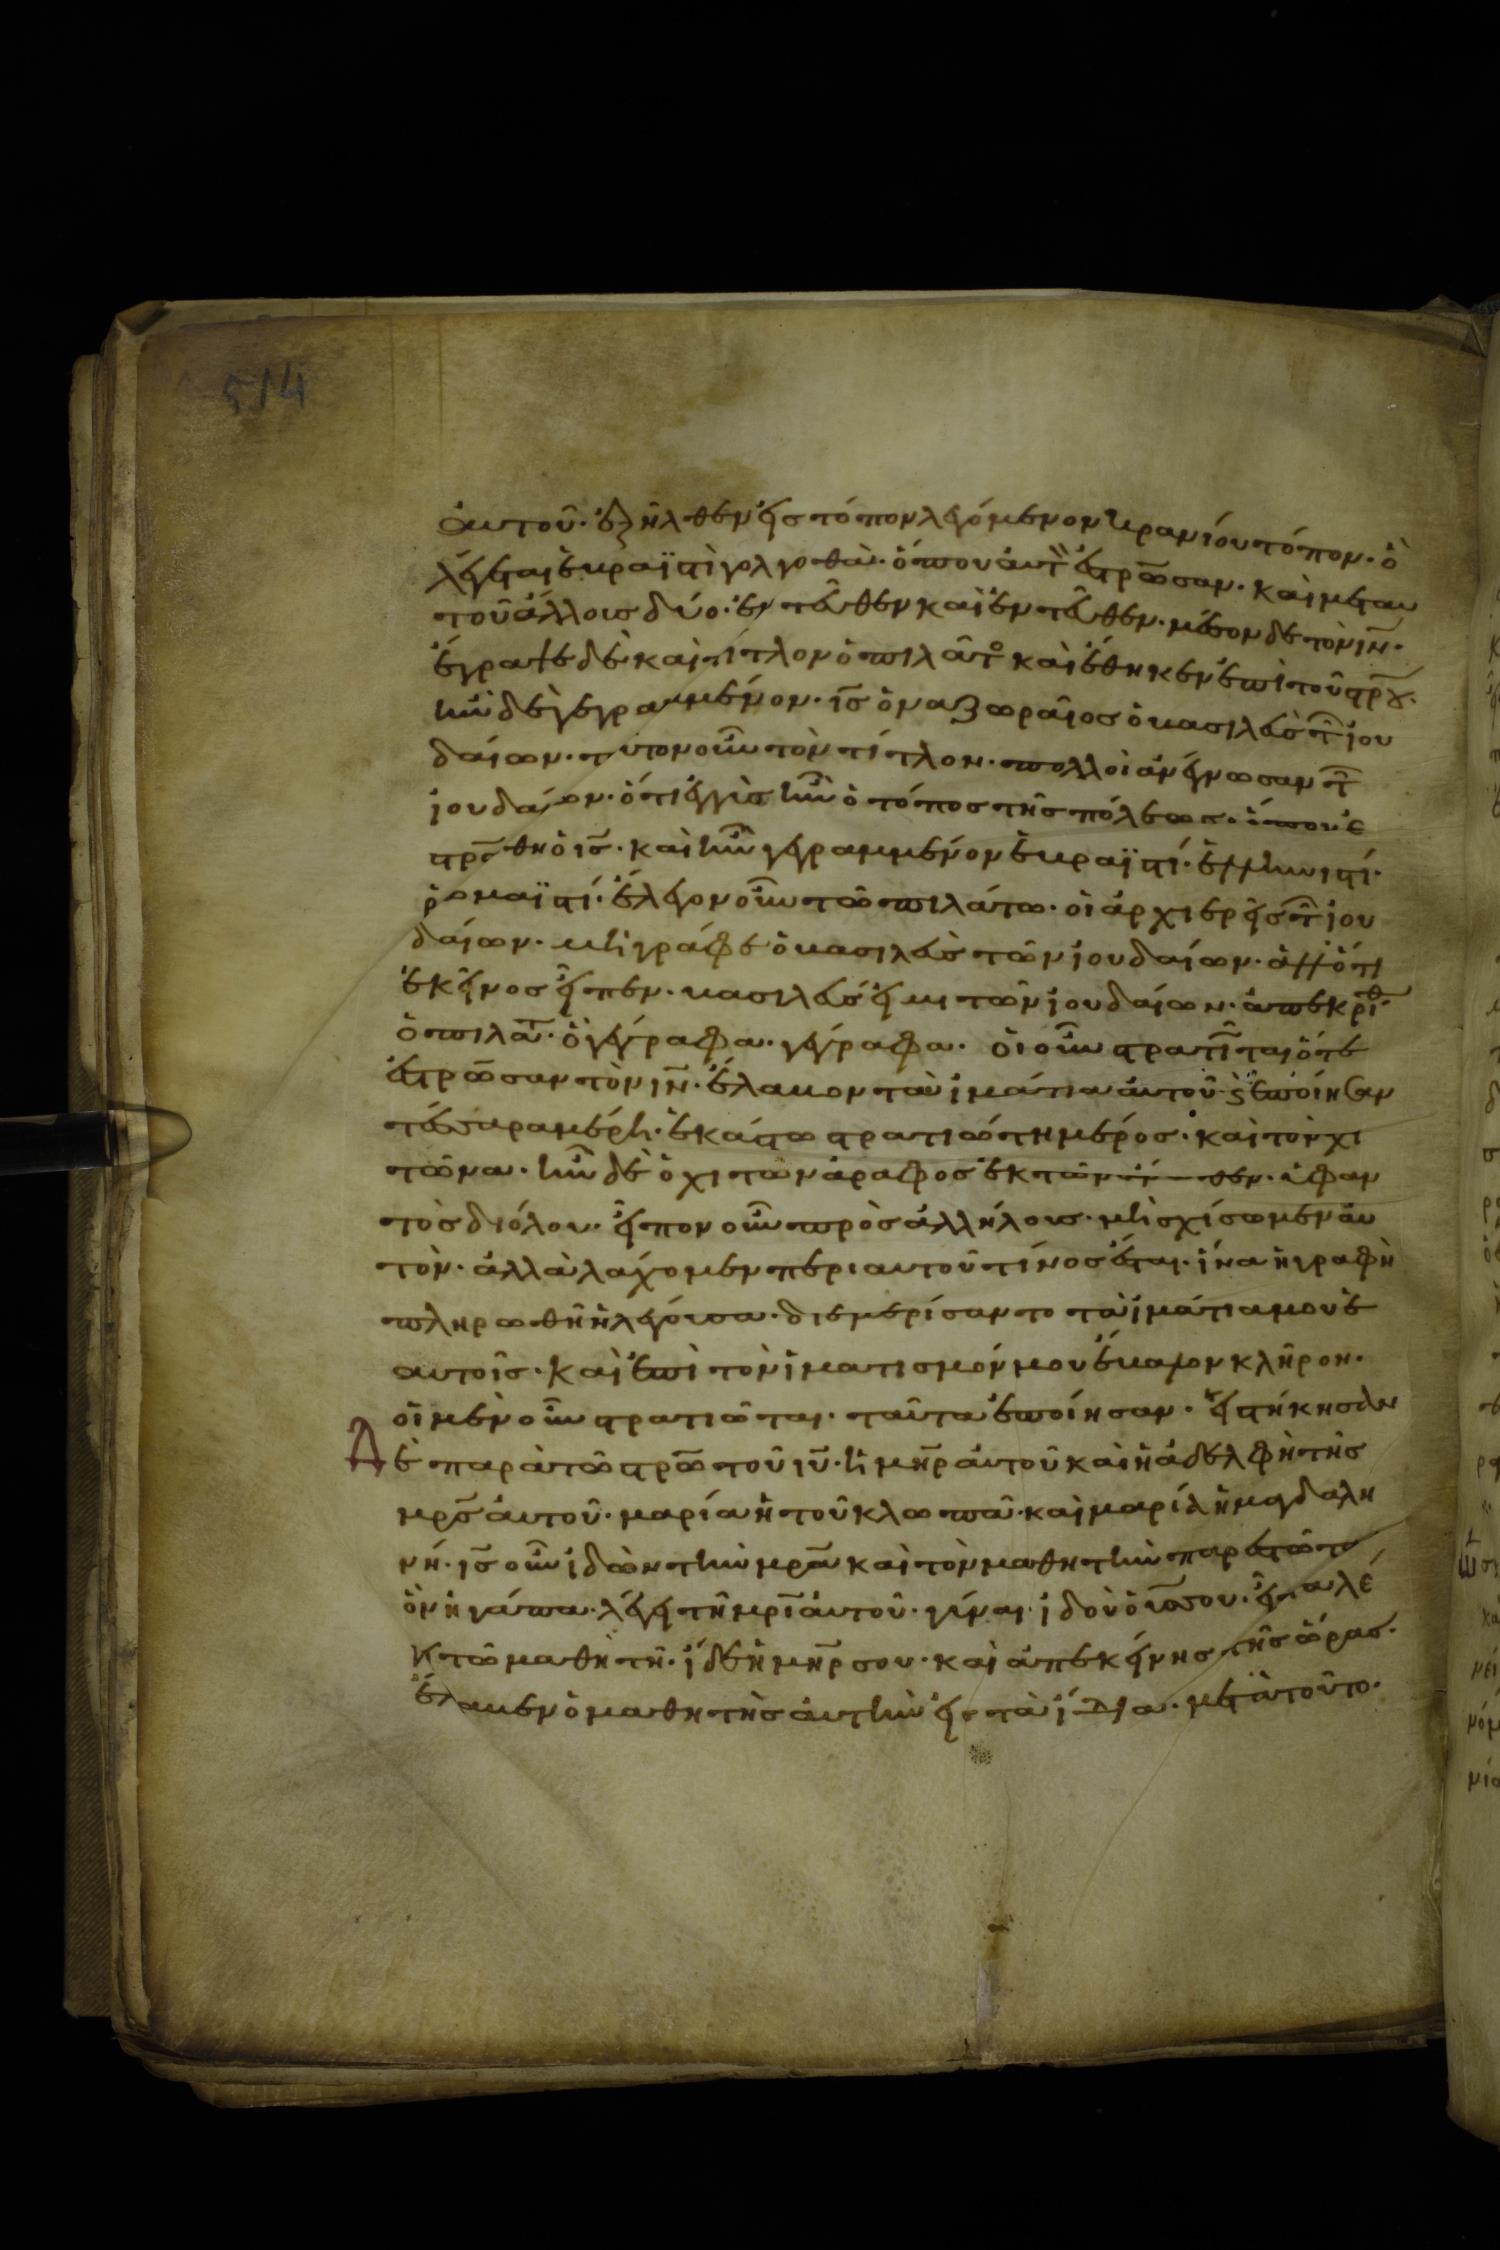 514
αυτοῦ· ἐξῆλθεν εἰς τόπον λεγόμενον κρανίου τόπον· ὃ
λέγεται ἑβραϊστὶ γολγοθᾶ· ὅπου αὐτ ἐστρωσαν· καὶ μεταυ
τοῦ ἄλλους δύο· ἐντεῦθεν καὶ ἐντεῦθεν· μέσον δε τὸν ιν·
ἔγραψε δὲ καὶ τίτλον ὁ πιλᾶτο καὶ ἔθηκεν ἐπὶ τοῦ στρου·
ἦν δὲ γεγραμμένον· ις ὁ ναζωραῖος ὁ βασιλεὺς τ ιου
δαίων· τοῦτον οὖν τὸν τίτλον· πολλοὶ ἀνέγνωσαν τ
ιουδαίων· ὅτι ἐγγὺς ἦν ὁ τόπος τῆς πόλεως· ὅπου ἐ
στρσθη ὁ ις· καὶ ἦν γεγραμμένον ἑβραϊστί· ἑλληνιστί·
ῥομαϊστί· ἔλεγον οὖν τῶ πιλάτω· οἱ ἀρχιερεῖς τ ιου
δαίων· μὴ γράφε ὁ βασιλεὺς τῶν ιουδαίων· ἀλλ ὅτι
ἐκεῖνος εἶπεν· βασιλεύς εἰμι τῶν ιουδαίων· ἀπεκριθ
ὁ πιλατ· ὃ γέγραφα· γέγραφα· οἱ οὖν στρατιται ὅτε
ἐστρωσαν τὸν ιν· ἔλαβον τὰ ἱμάτια αὐτοῦ ϛ ἐποίησαν
τέσσαρα μέρη· ἑκάστω στρατιώτη μέρος· καὶ τὸν χι
τῶνα· ἦν δὲ ὁ χιτὼν ἄραφος ἐκ τῶν ἄνωθεν· ὑφαν
τὸς διόλου· εἶπον οὖν πρὸς ἀλλήλους· μὴ σχίσωμεν αὐ
τὸν· ἀλλὰ λάχομεν περι αυτοῦ τίνος ἔσται· ἵνα ἡ γραφὴ
πληρωθῆ ἡ λέγουσα· διεμερίσαντο τὰ ἱμάτια μου ἑ
αυτοῖς· καὶ ἐπὶ τὸν ἱματισμόν μου ἔβαλον κλῆρον·
οἱ μὲν οὖν στρατιῶται· ταῦτα ἐποίησαν· εἱστήκησαν
Δ ὲ παρὰ τῶ στρω τοῦ ιυ· ἡ μηρ αὐτοῦ καὶ ἡ ἀδελφὴ τῆς
μρς αὐτοῦ· μαρία ἡ τοῦ κλωπᾶ· καὶ μαρία ἡ μαγδαλη
νή· ις οὖν ἰδὼν τὴν μρα καὶ τὸν μαθητὴν παρεστῶτα
ὃν ἠγάπα· λέγει τῆ μρι αὐτοῦ· γύναι· ἰδοὺ ὁ υιοσου· εἶτα λέ
γει τῶ μαθητῆ· ἴδε ἡ μηρ σου· καὶ ἀπεκείνης τῆς ὥρας·
ἔλαβεν ὁ μαθητὴς αὐτὴν εἰς τὰ ἴδια· μετὰ τοῦτο·